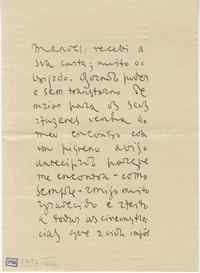 Manoel: recebi a
sua carta; muito ob
rigado. Quando puder
e sem transtorno de
maior para os seus
afazeres venha ao
meu encontro com
um pequeno aviso
antecipado para que
me encontre - como
sempre - amigo muito
agradecido e atento
a todas as circunstân
cias que a vida impõe